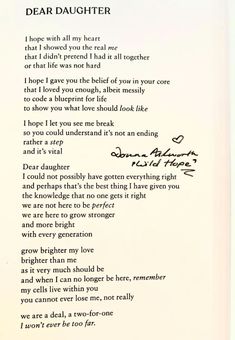 DEAR DAUGHTER
I hope with all my heart
that I showed you the real me
that I didn't pretend I had it all together
or that life was not hard
I hope I gave you the belief of you in your core
that I loved you enough, albeit messily
to code a blueprint for life
to show you what love should look like
I hope I let you see me break
so you could understand it's not an ending
rather a step
and it's vital
Donna Ashworth
"Wild Hope"
Dear daughter
I could not possibly have gotten everything right
and perhaps that's the best thing I have given you
the knowledge that no one gets it right
we are not here to be perfect
we are here to grow stronger
and more bright
with every generation
grow brighter my love
brighter than me
as it very much should be
and when I can no longer be here, remember
my cells live within you
you cannot ever lose me, not really
we are a deal, a two-for-one
I won't ever be too far.